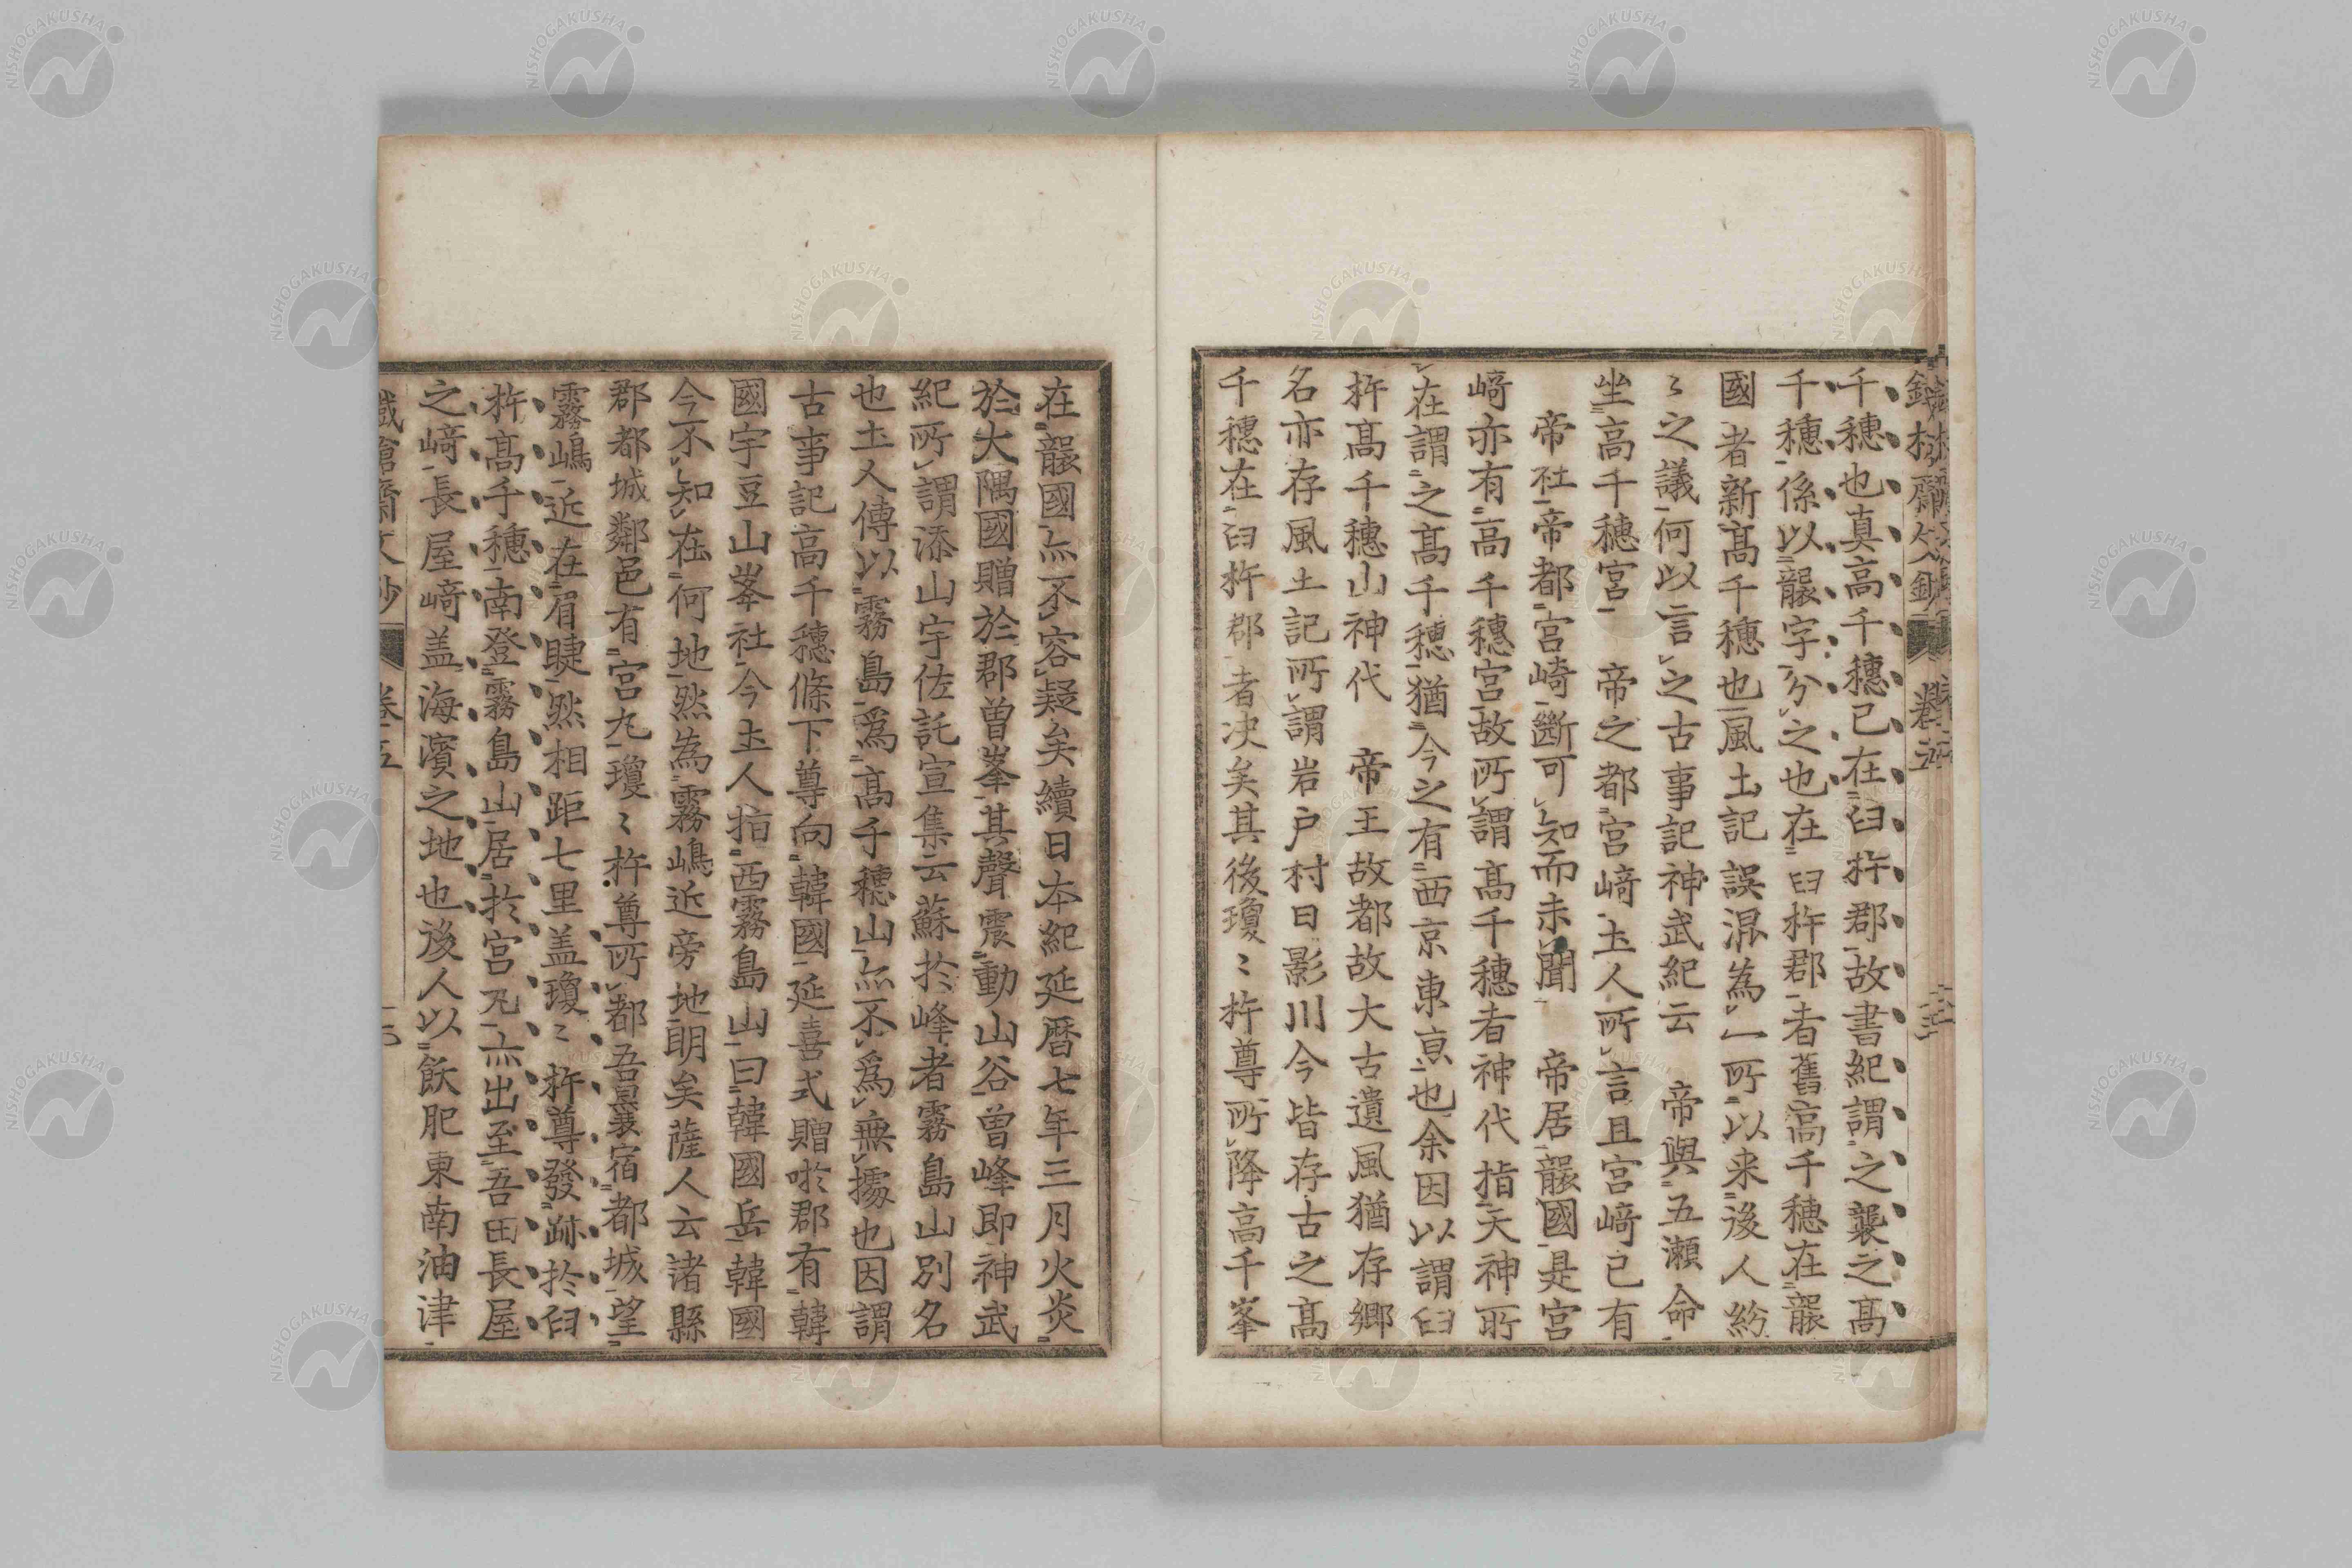 千穗也真高千穗已在臼杵郡故書紀謂之襲之高
千穗係以䙝字分之也在臼杵郡者舊高千穗在䙝
國者新高千穗也風土記誤混為一所以来後人紛
〻之議何以言之古事記神武紀云　帝與五瀬命
坐高千穗宮　帝之都宮﨑土人所言且宮﨑已有
帝社帝都宮崎斷可知而未聞　帝居䙝國是宮
﨑亦有高千穗宮故所謂高千穗者神代指天神所
在謂之高千穗猶今之有西京東亰也余因以謂臼
杵高千穗山神代　帝王故都故大古遺風猶存鄉
名亦存風土記所謂岩户村日影川今皆存古之高
千穗在臼杵郡者决矣其後瓊〻杵尊所降高千峯
在䙝國亦不容疑矣續日本紀延暦七年三月火炎
於大隅國贈於郡曽峯其聲震動山谷曽峰即神武
紀所謂添山宇佐託宣集云蘇於峰者霧島山別名
也土人傳以霧島爲高千穗山亦不爲無據也因謂
古事記高千穗條下尊向韓國延喜式贈唹郡有韓
國宇豆山峯社今土人指西霧島山曰韓國岳韓國
今不知在何地然為霧嶋近旁地明矣薩人云諸縣
郡都城鄰邑有宮丸瓊〻杵尊所都吾曩宿都城望
霧嶋近在眉睫然相距七里盖瓊〻杵尊發跡於臼
杵高千穗南登霧島山居於宮丸亦出至吾田長屋
之﨑長屋﨑盖海濱之地也後人以飫肥東南油津
卷五
NISHOGAKUSHA